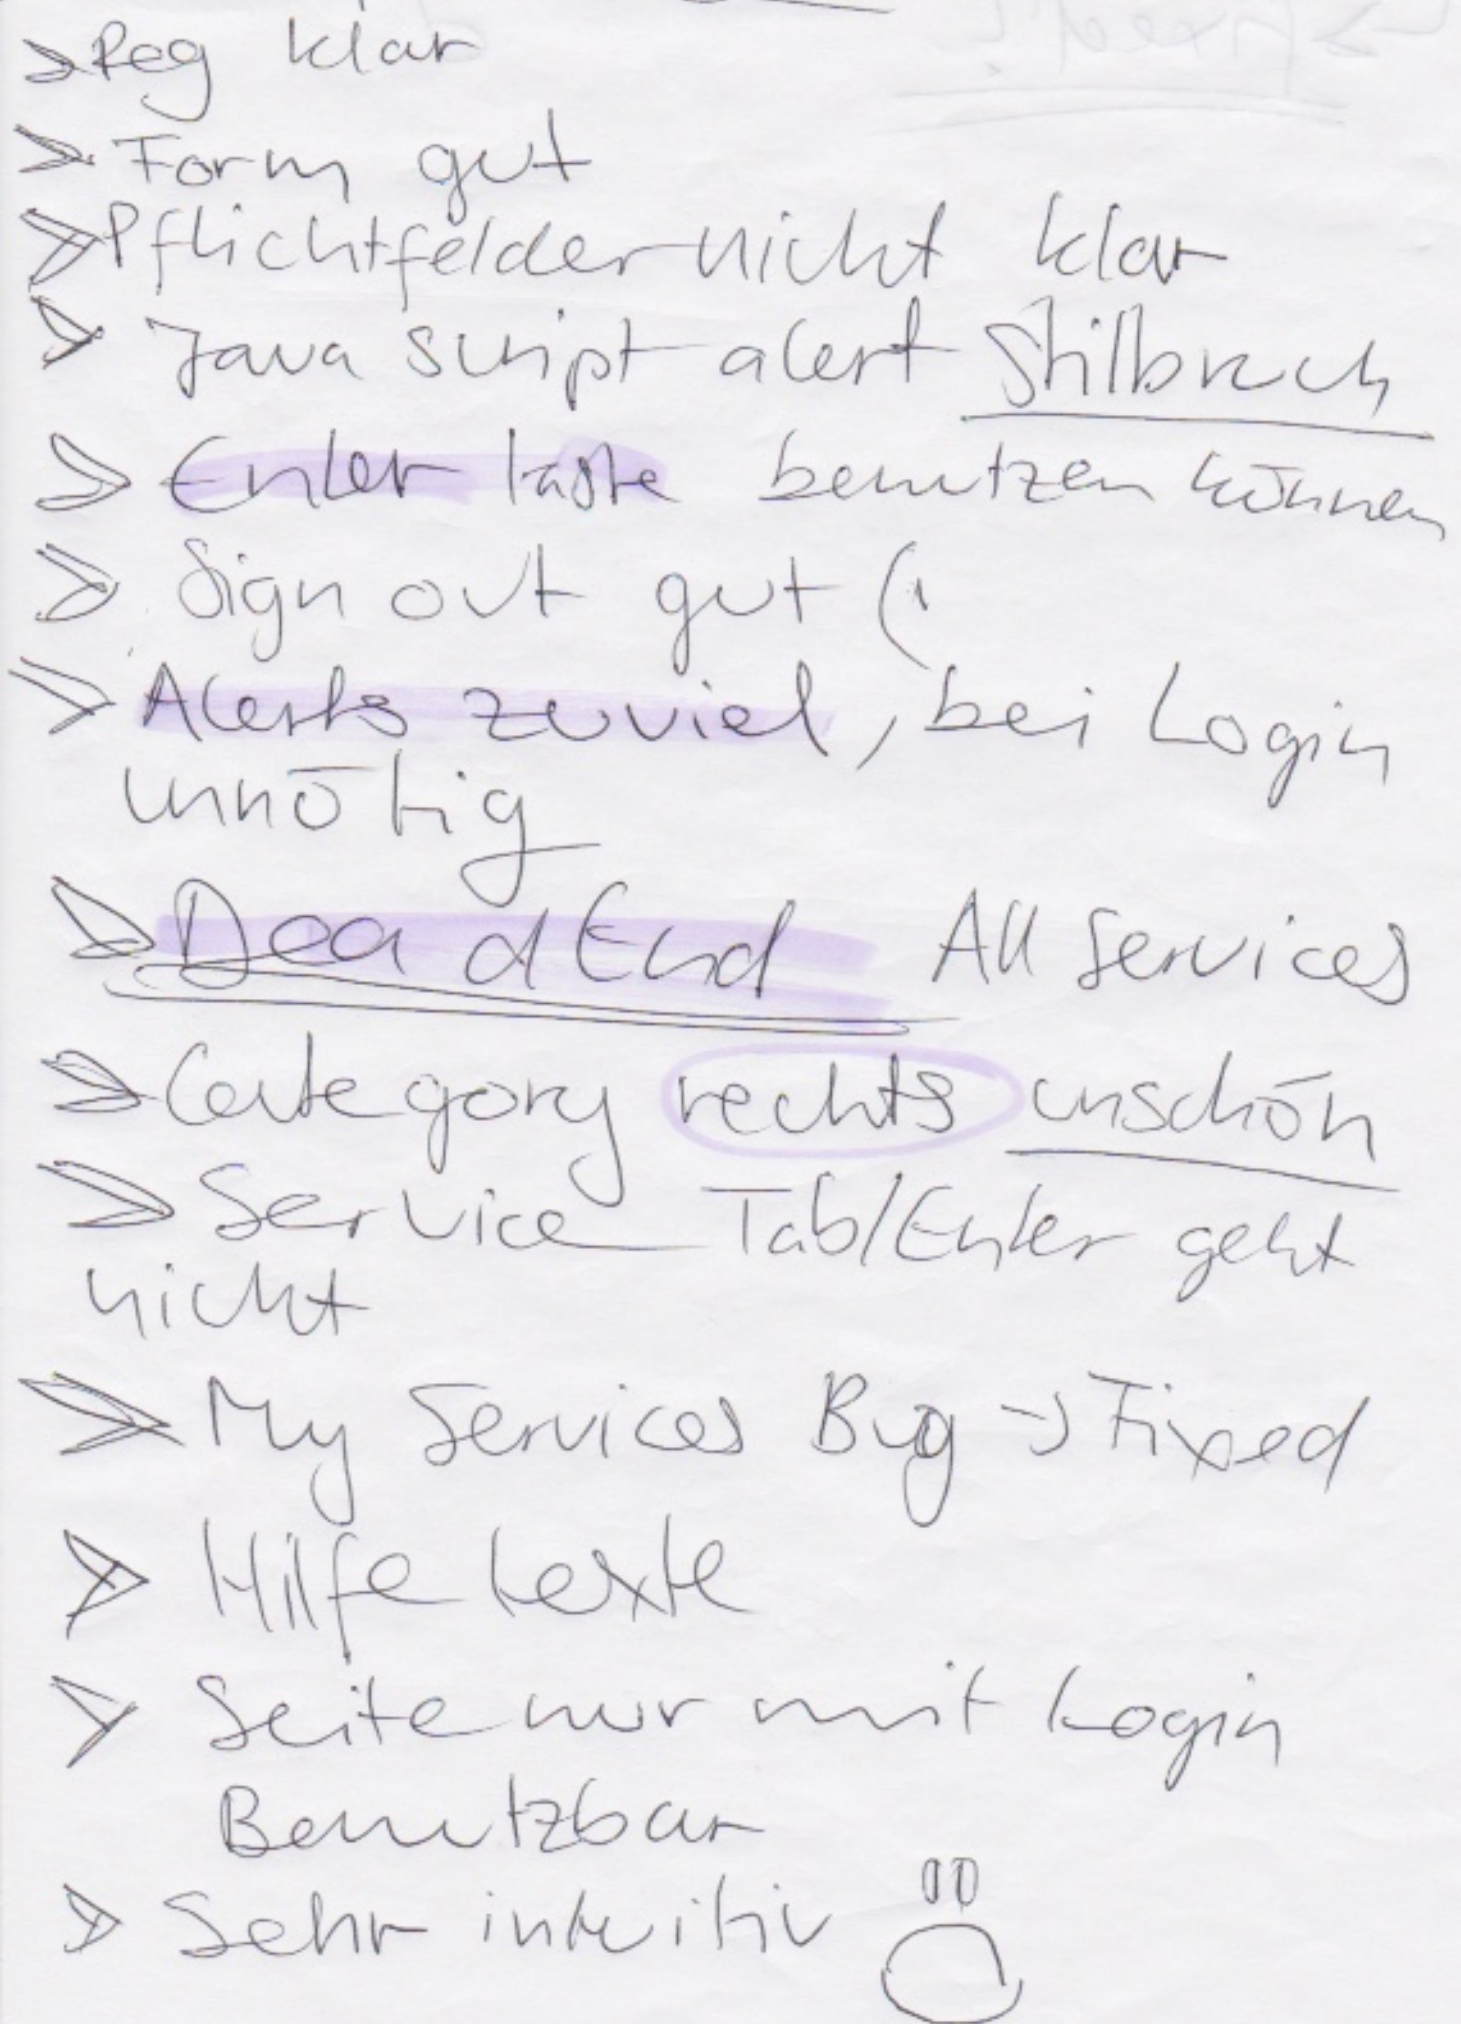 > Reg klar
> Form gut
> Pflichtfelder nicht klar
> Java script alert Stilbruch
> Enter taste benutzen können
> Sign out gut (
> Alerts zuviel, bei Login
unnötig
> Dead End All Services
> Category rechts unschön
> Service Tab/Enter geht
nicht
> My Services Bug → Fixed
> Hilfe texte
> Seite nur mit Login
Benutzbar
> Sehr intuitiv